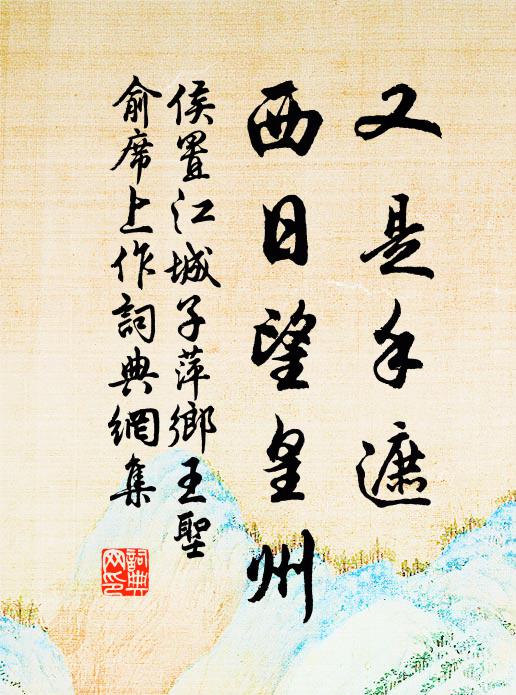 又是手遮
西日望皇州
侯置江城子萍鄉王聖
俞席上作詞典網集
詞典